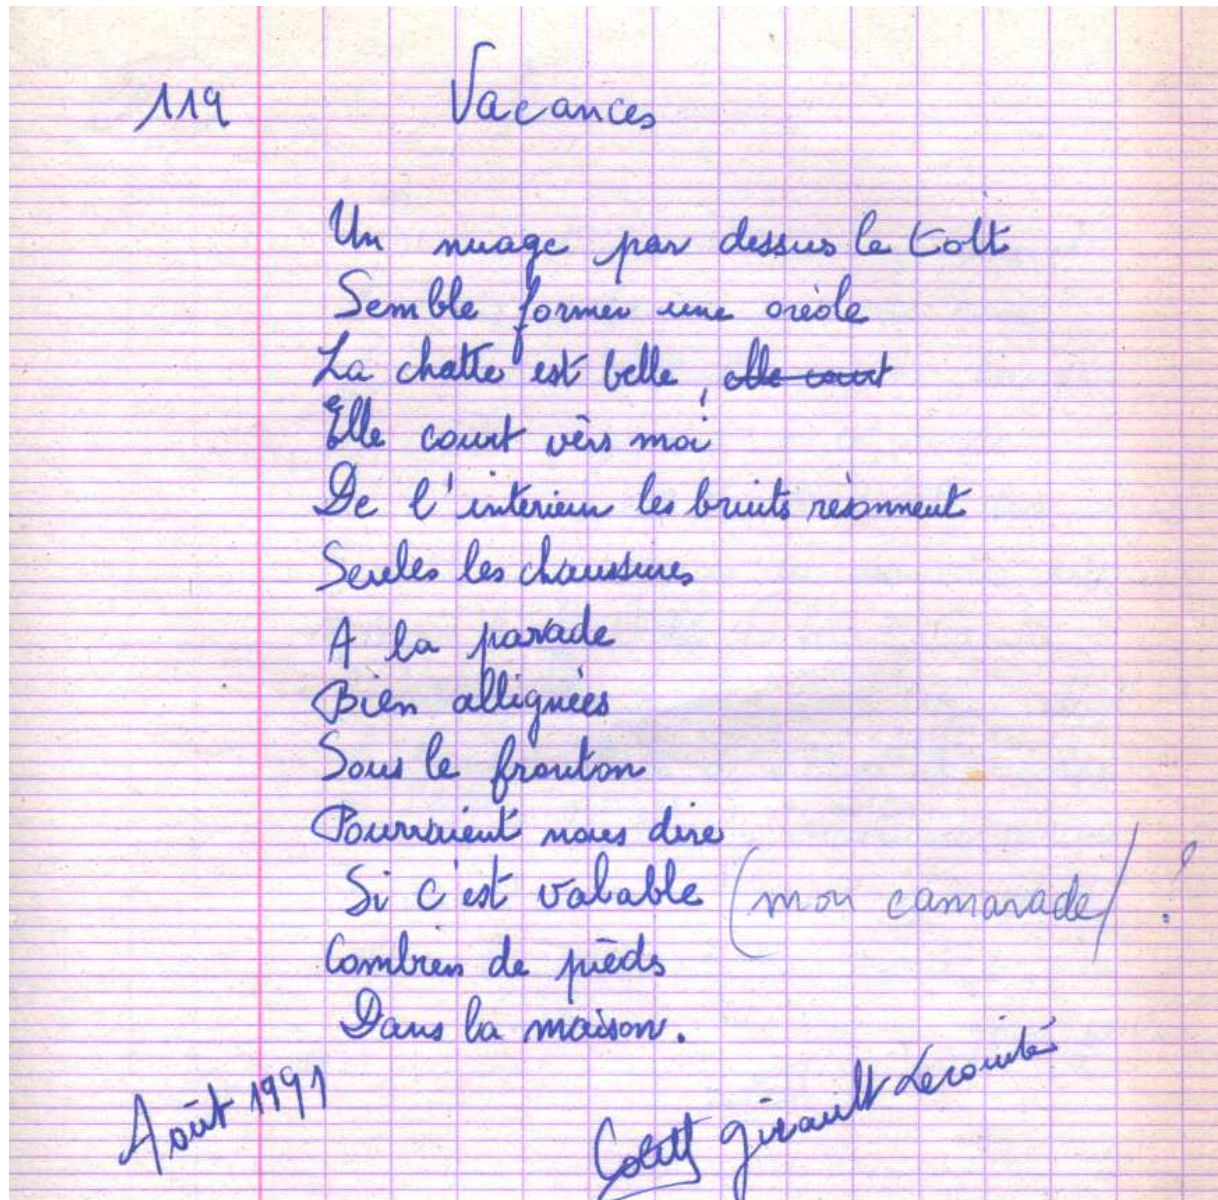 119 Vacances
Un nuage par dessus le toît
Semble former une oréole
La chatte est belle, elle court
Elle court vers moi
De l'intérieur les bruits résonnent
Seules les chaussures
A la parade
Bien allignées
Sous le fronton
Pourraient nous dire
Si c'est valable (mon camarade) ?
Combien de pieds
Dans la maison.
Août 1991
Girault